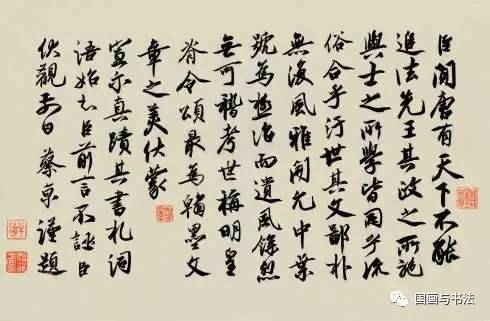 臣聞唐有天下不能
追法先王其政之所施
與士之所學皆同乎流
俗合乎汙世其文鄙朴
無復風雅開元中葉
號為極治而遺風餘烈
無可稽考世稱明皇
脊令頌最為翰墨文
章之美伏蒙
宣示真蹟其書札詞
語始知臣前言不誣臣
伏觀日蔡京謹題
国画与书法